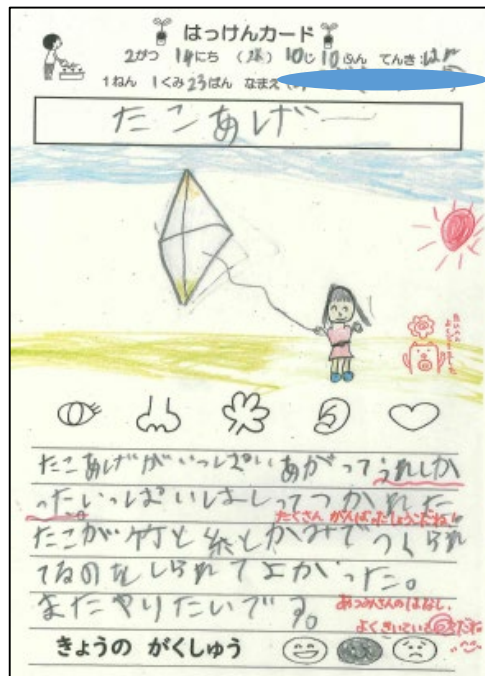 はっけんカード
2がつ 14にち (水) 10じ 10ぷん てんき:はれ
1ねん 1くみ 23ばん なまえ
たこあげ
たこあげがいっぱいあがってうれしか
ったいっぱいはしってつかれた
たくさん がんばったしょうこだね!
たこが竹と糸とかみでつくられ
てるのをしられてよかった。
またやりたいです。
よくきいている
きょうの がくしゅう